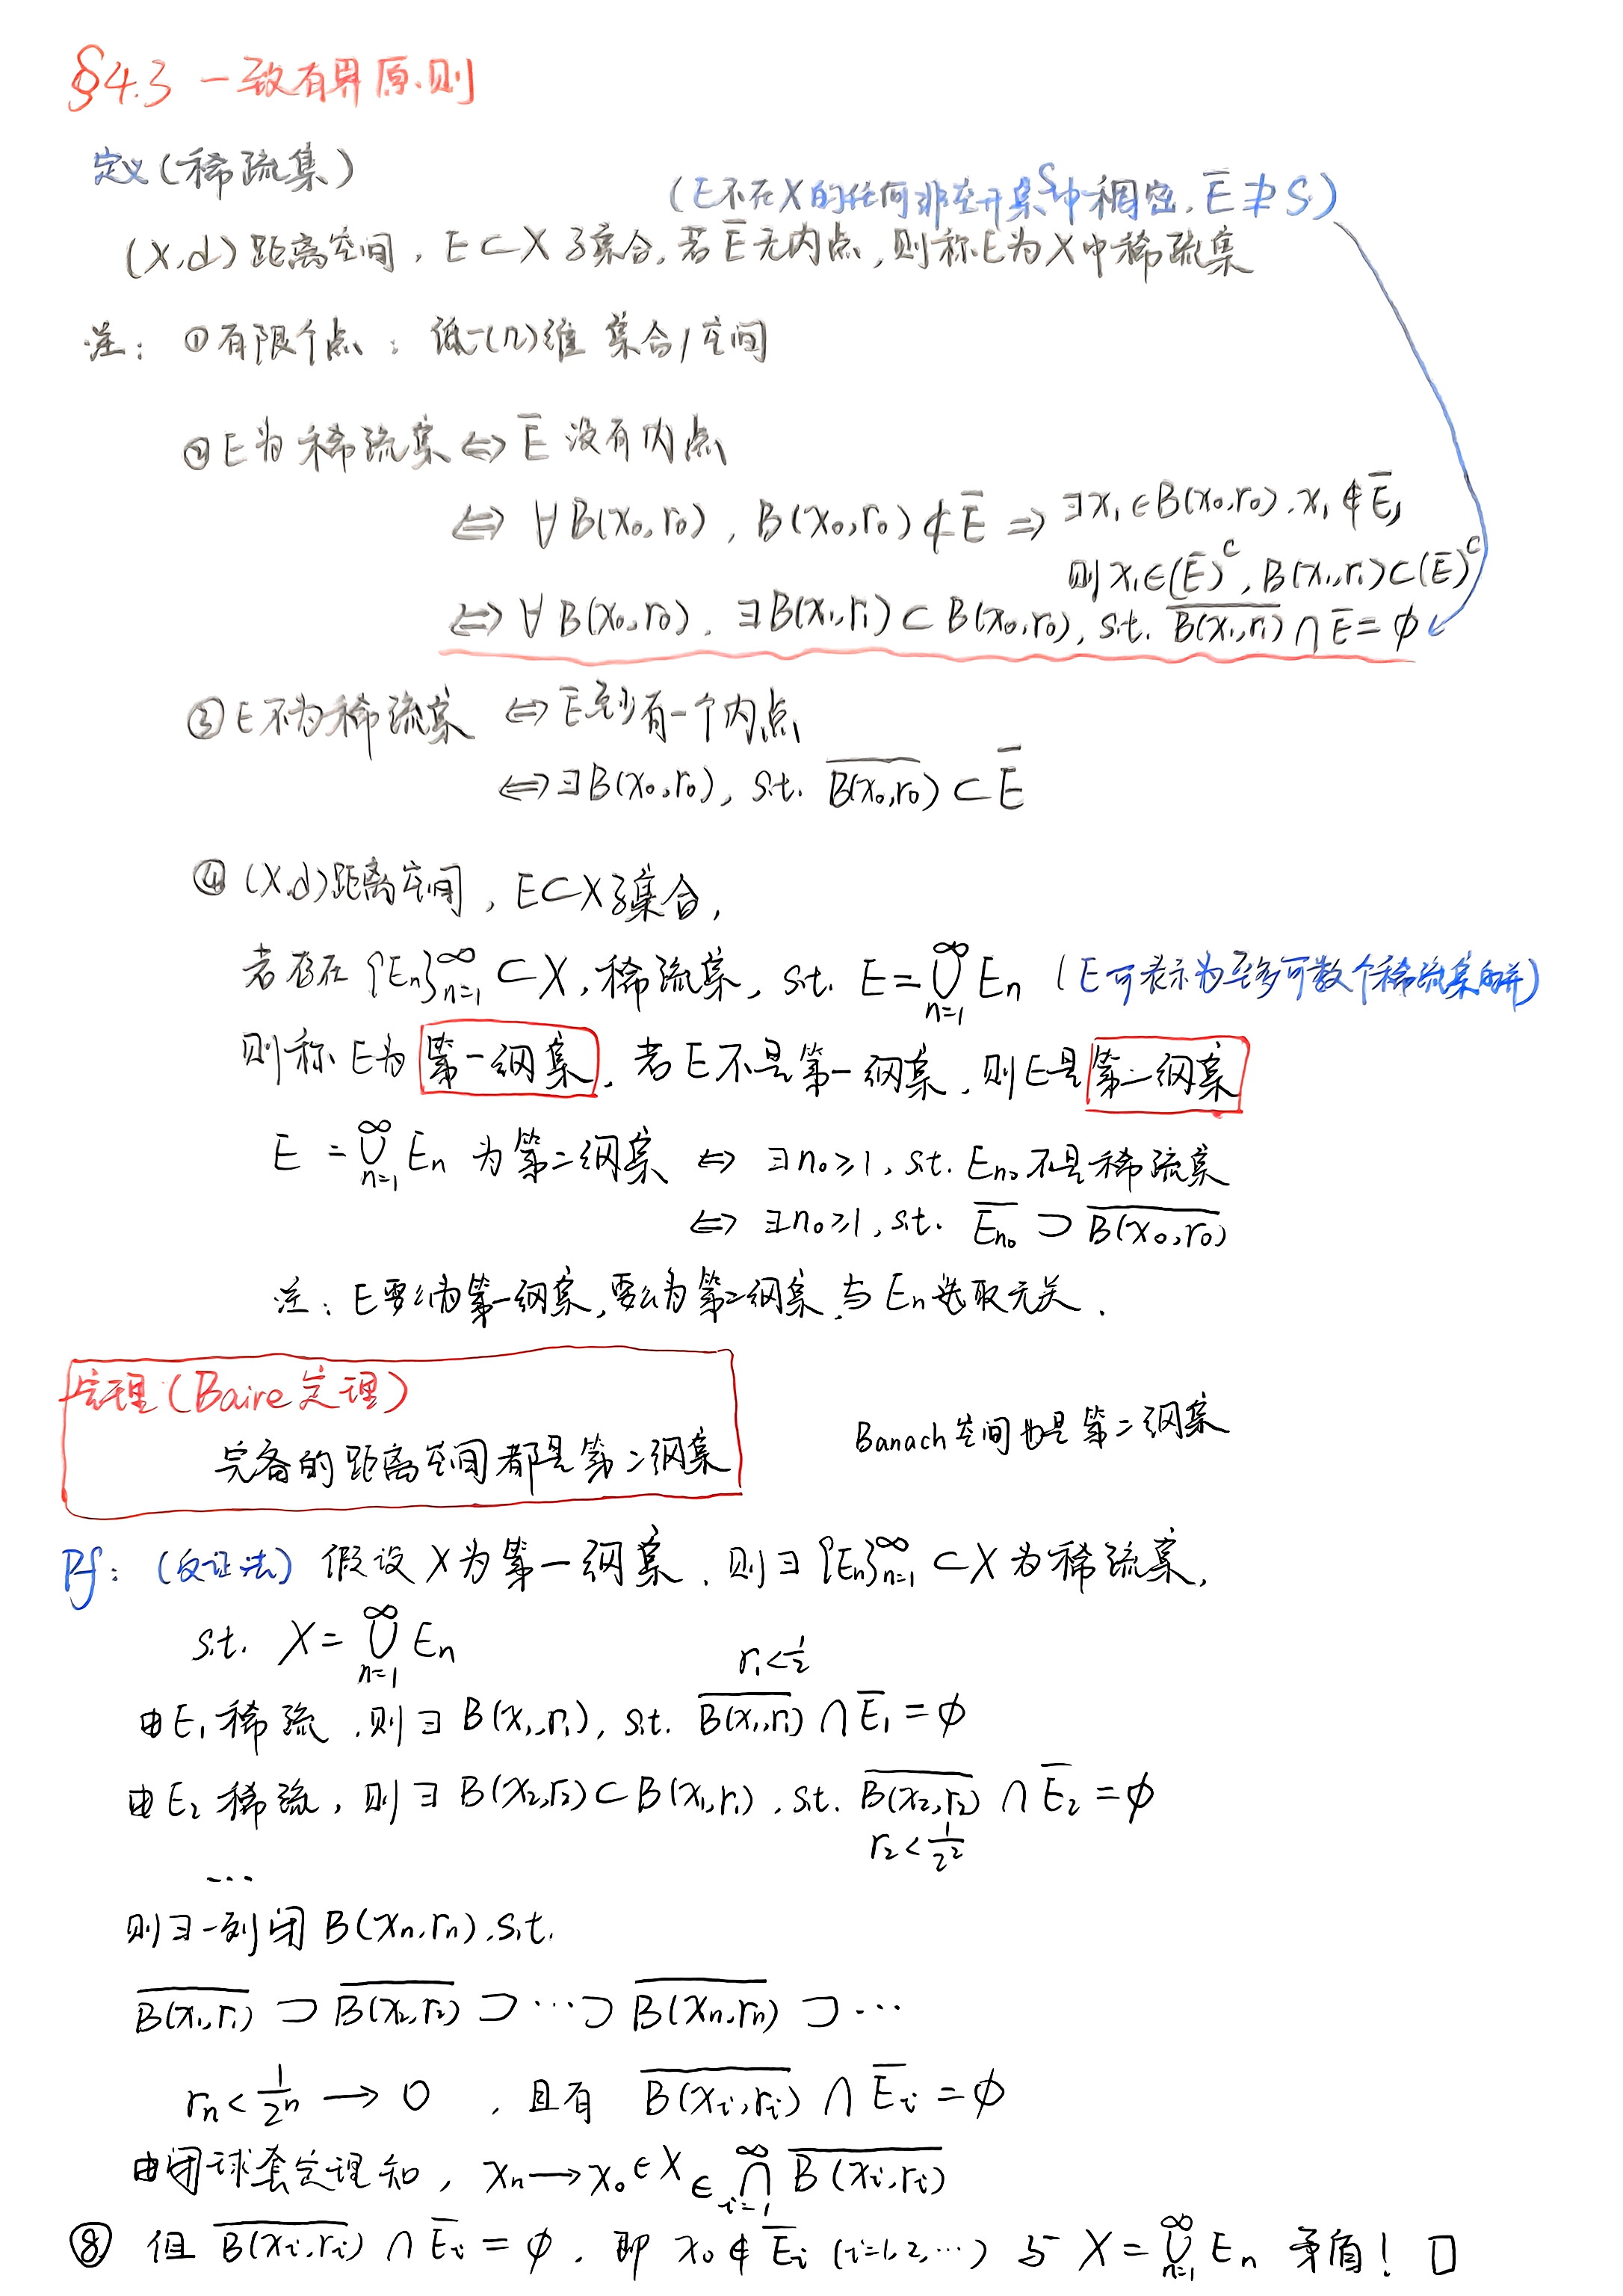 §4.3 一致有界原则
定义(稀疏集)
(E不在X的任何非空开集S中稠密, E̅ ⊉ S)
(X,d) 距离空间, E⊂X 子集合, 若 E̅ 无内点, 则称E为X中稀疏集
注: ①有限个点; 低一(n)维 集合/空间
②E为稀疏集 ⇔ E̅ 没有内点
⇔ ∀B(x₀,r₀), B(x₀,r₀)⊄E̅ ⇒ ∃x₁∈B(x₀,r₀), x₁∉E̅,
则x₁∈(E̅)ᶜ, B(x₁,r₁)⊂(E̅)ᶜ
⇔ ∀B(x₀,r₀), ∃B(x₁,r₁)⊂B(x₀,r₀), s.t. \overline{B(x₁,r₁)}∩E̅=∅
③E不为稀疏集 ⇔ E̅至少有一个内点
⇔∃B(x₀,r₀), s.t. \overline{B(x₀,r₀)}⊂E̅
④ (X,d)距离空间, E⊂X子集合,
若存在 {Eₙ}_{n=1}^∞ ⊂X, 稀疏集, s.t. E=\bigcup_{n=1}^∞ Eₙ (E可表示为至多可数个稀疏集的并)
则称E为 第一纲集, 若E不是第一纲集, 则E是 第二纲集
E=\bigcup_{n=1}^∞ Eₙ 为第二纲集 ⇔ ∃n₀≥1, s.t. E_{n₀}不是稀疏集
⇔ ∃n₀≥1, s.t. \overline{E_{n₀}} ⊃ \overline{B(x₀,r₀)}
注: E要么为第一纲集, 要么为第二纲集, 与Eₙ选取无关.
定理(Baire定理)
完备的距离空间都是第二纲集
Banach空间也是第二纲集
Pf: (反证法) 假设X为第一纲集, 则∃{Eₙ}_{n=1}^∞ ⊂X为稀疏集,
s.t. X=\bigcup_{n=1}^∞ Eₙ
r₁<\frac{1}{2}
由E₁稀疏, 则∃B(x₁,r₁), s.t. \overline{B(x₁,r₁)}∩E̅₁=∅
由E₂稀疏, 则∃B(x₂,r₂)⊂B(x₁,r₁), s.t. \overline{B(x₂,r₂)}∩E̅₂=∅
r₂<\frac{1}{2²}
...
则∃一列闭B(xₙ,rₙ), s.t.
\overline{B(x₁,r₁)}⊃\overline{B(x₂,r₂)}⊃⋯⊃\overline{B(xₙ,rₙ)}⊃⋯
rₙ<\frac{1}{2ⁿ}→0, 且有 \overline{B(xᵢ,rᵢ)}∩E̅ᵢ=∅
由闭球套定理知, xₙ→x₀∈X ∈\bigcap_{i=1}^∞ \overline{B(xᵢ,rᵢ)}
⑧ 但 \overline{B(xᵢ,rᵢ)}∩E̅ᵢ=∅, 即 x₀∉E̅ᵢ (i=1,2,⋯) 与 X=\bigcup_{n=1}^∞ Eₙ 矛盾! □